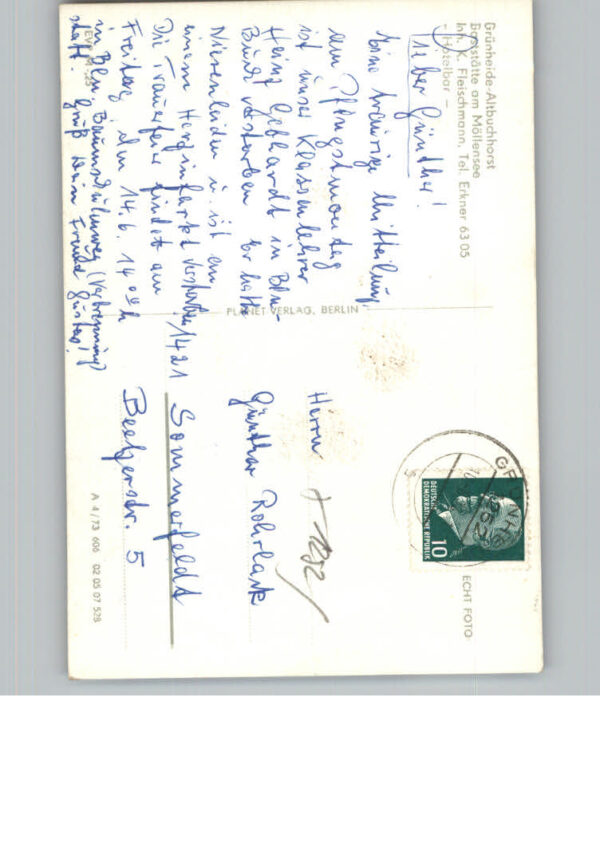 Grünheide-Altbuchhorst
Gaststätte am Möllensee
Inh. K. Fleischmann, Tel. Erkner 63 05
- Hotelbar -
Lieber Günther!
Eine traurige Mitteilung
am Pfingstmontag
ist unser Klassenlehrer
Heinz Gebhardt in Bln-
Buch verstorben Er hatte
Nierenleiden u. ist an
einem Herzinfarkt verstorben
Die Trauerfeier findet am
Freitag, den 14.6. 14 00 h
in Bln. Baumschulenweg (Verbrennung)
statt. Gruß Dein Freund Gustav!
EVP M -,25
PLANET VERLAG, BERLIN
Herrn
Günther Rohrlack
1421
Sommerfeldt
Beetzerstr. 5
A 4/73 606 02 05 07 528
DEUTSCHE
DEMOKRATISCHE REPUBLIK
10
ECHT FOTO